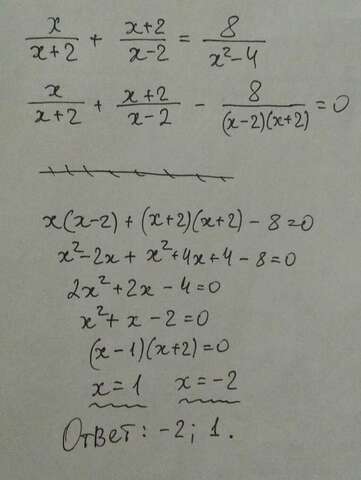 x/(x+2) + (x+2)/(x-2) = 8/(x²-4)
x/(x+2) + (x+2)/(x-2) - 8/((x-2)(x+2)) = 0
x(x-2) + (x+2)(x+2) - 8 = 0
x²-2x + x²+4x+4-8=0
2x²+2x-4=0
x²+x-2=0
(x-1)(x+2)=0
x=1 x=-2
Ответ: -2; 1.